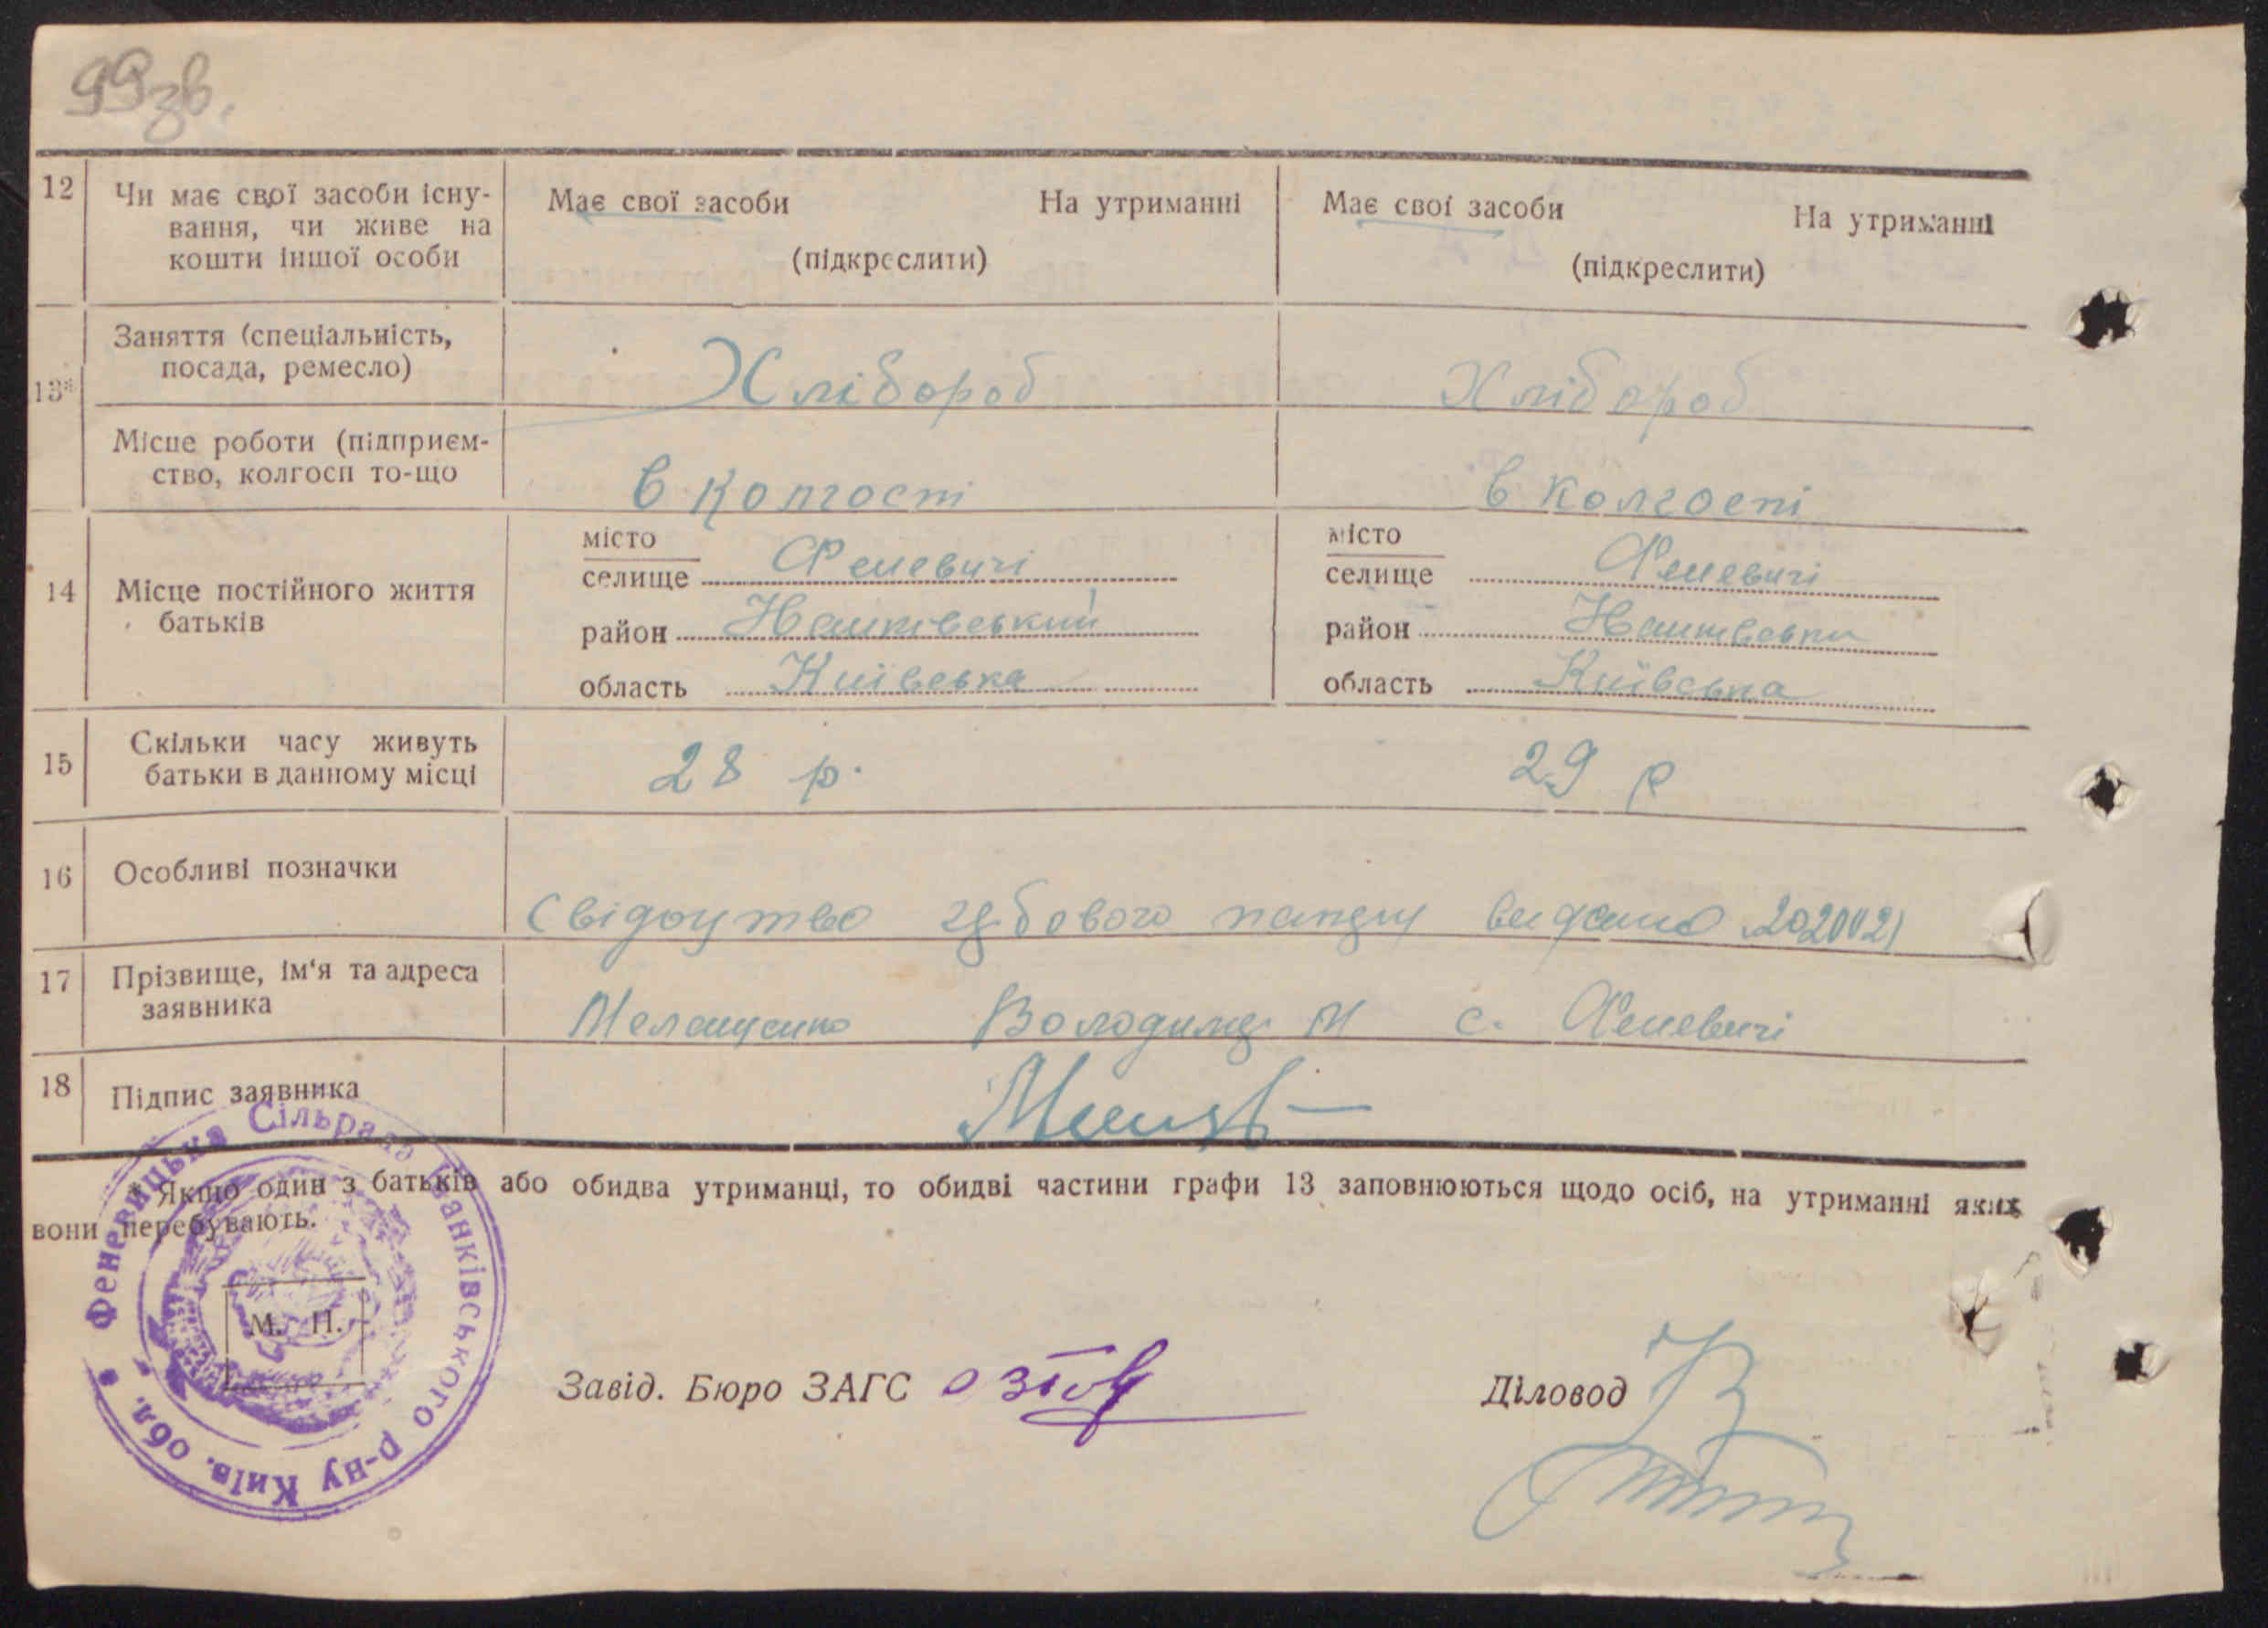 99зв.
12 Чи має свої засоби існу- Має свої засоби На утриманні Має свої засоби На утриманні
вання, чи живе на
кошти іншої особи (підкреслити) (підкреслити)
Заняття (спеціальність,
посада, ремесло) Хлібороб Хлібороб
13*
Місце роботи (підприєм-
ство, колгосп то-що в колгоспі в колгоспі
місто місто
селище Феневичі селище Феневичі
14 Місце постійного життя
батьків
район район
область Київська область Київська
15 Скільки часу живуть
батьки в данному місці 28 р. 29 р
16 Особливі позначки
Свідоцтво видано
17 Прізвище, ім'я та адреса
заявника Володимир М с. Феневичі
18 Підпис заявника
* Якщо один з батьків або обидва утриманці, то обидві частини графи 13 заповнюються щодо осіб, на утриманні яких
вони перебувають.
Феневицька Сільрада Іванківського р-ну Київ. обл.
М. П.
Завід. Бюро ЗАГС Діловод